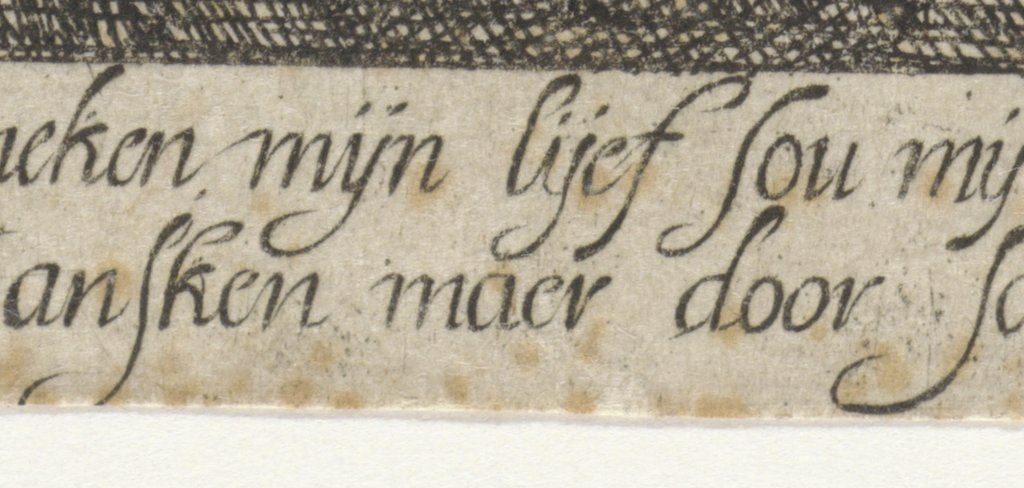 neken mijn lijef sou mij
ansken maer door so